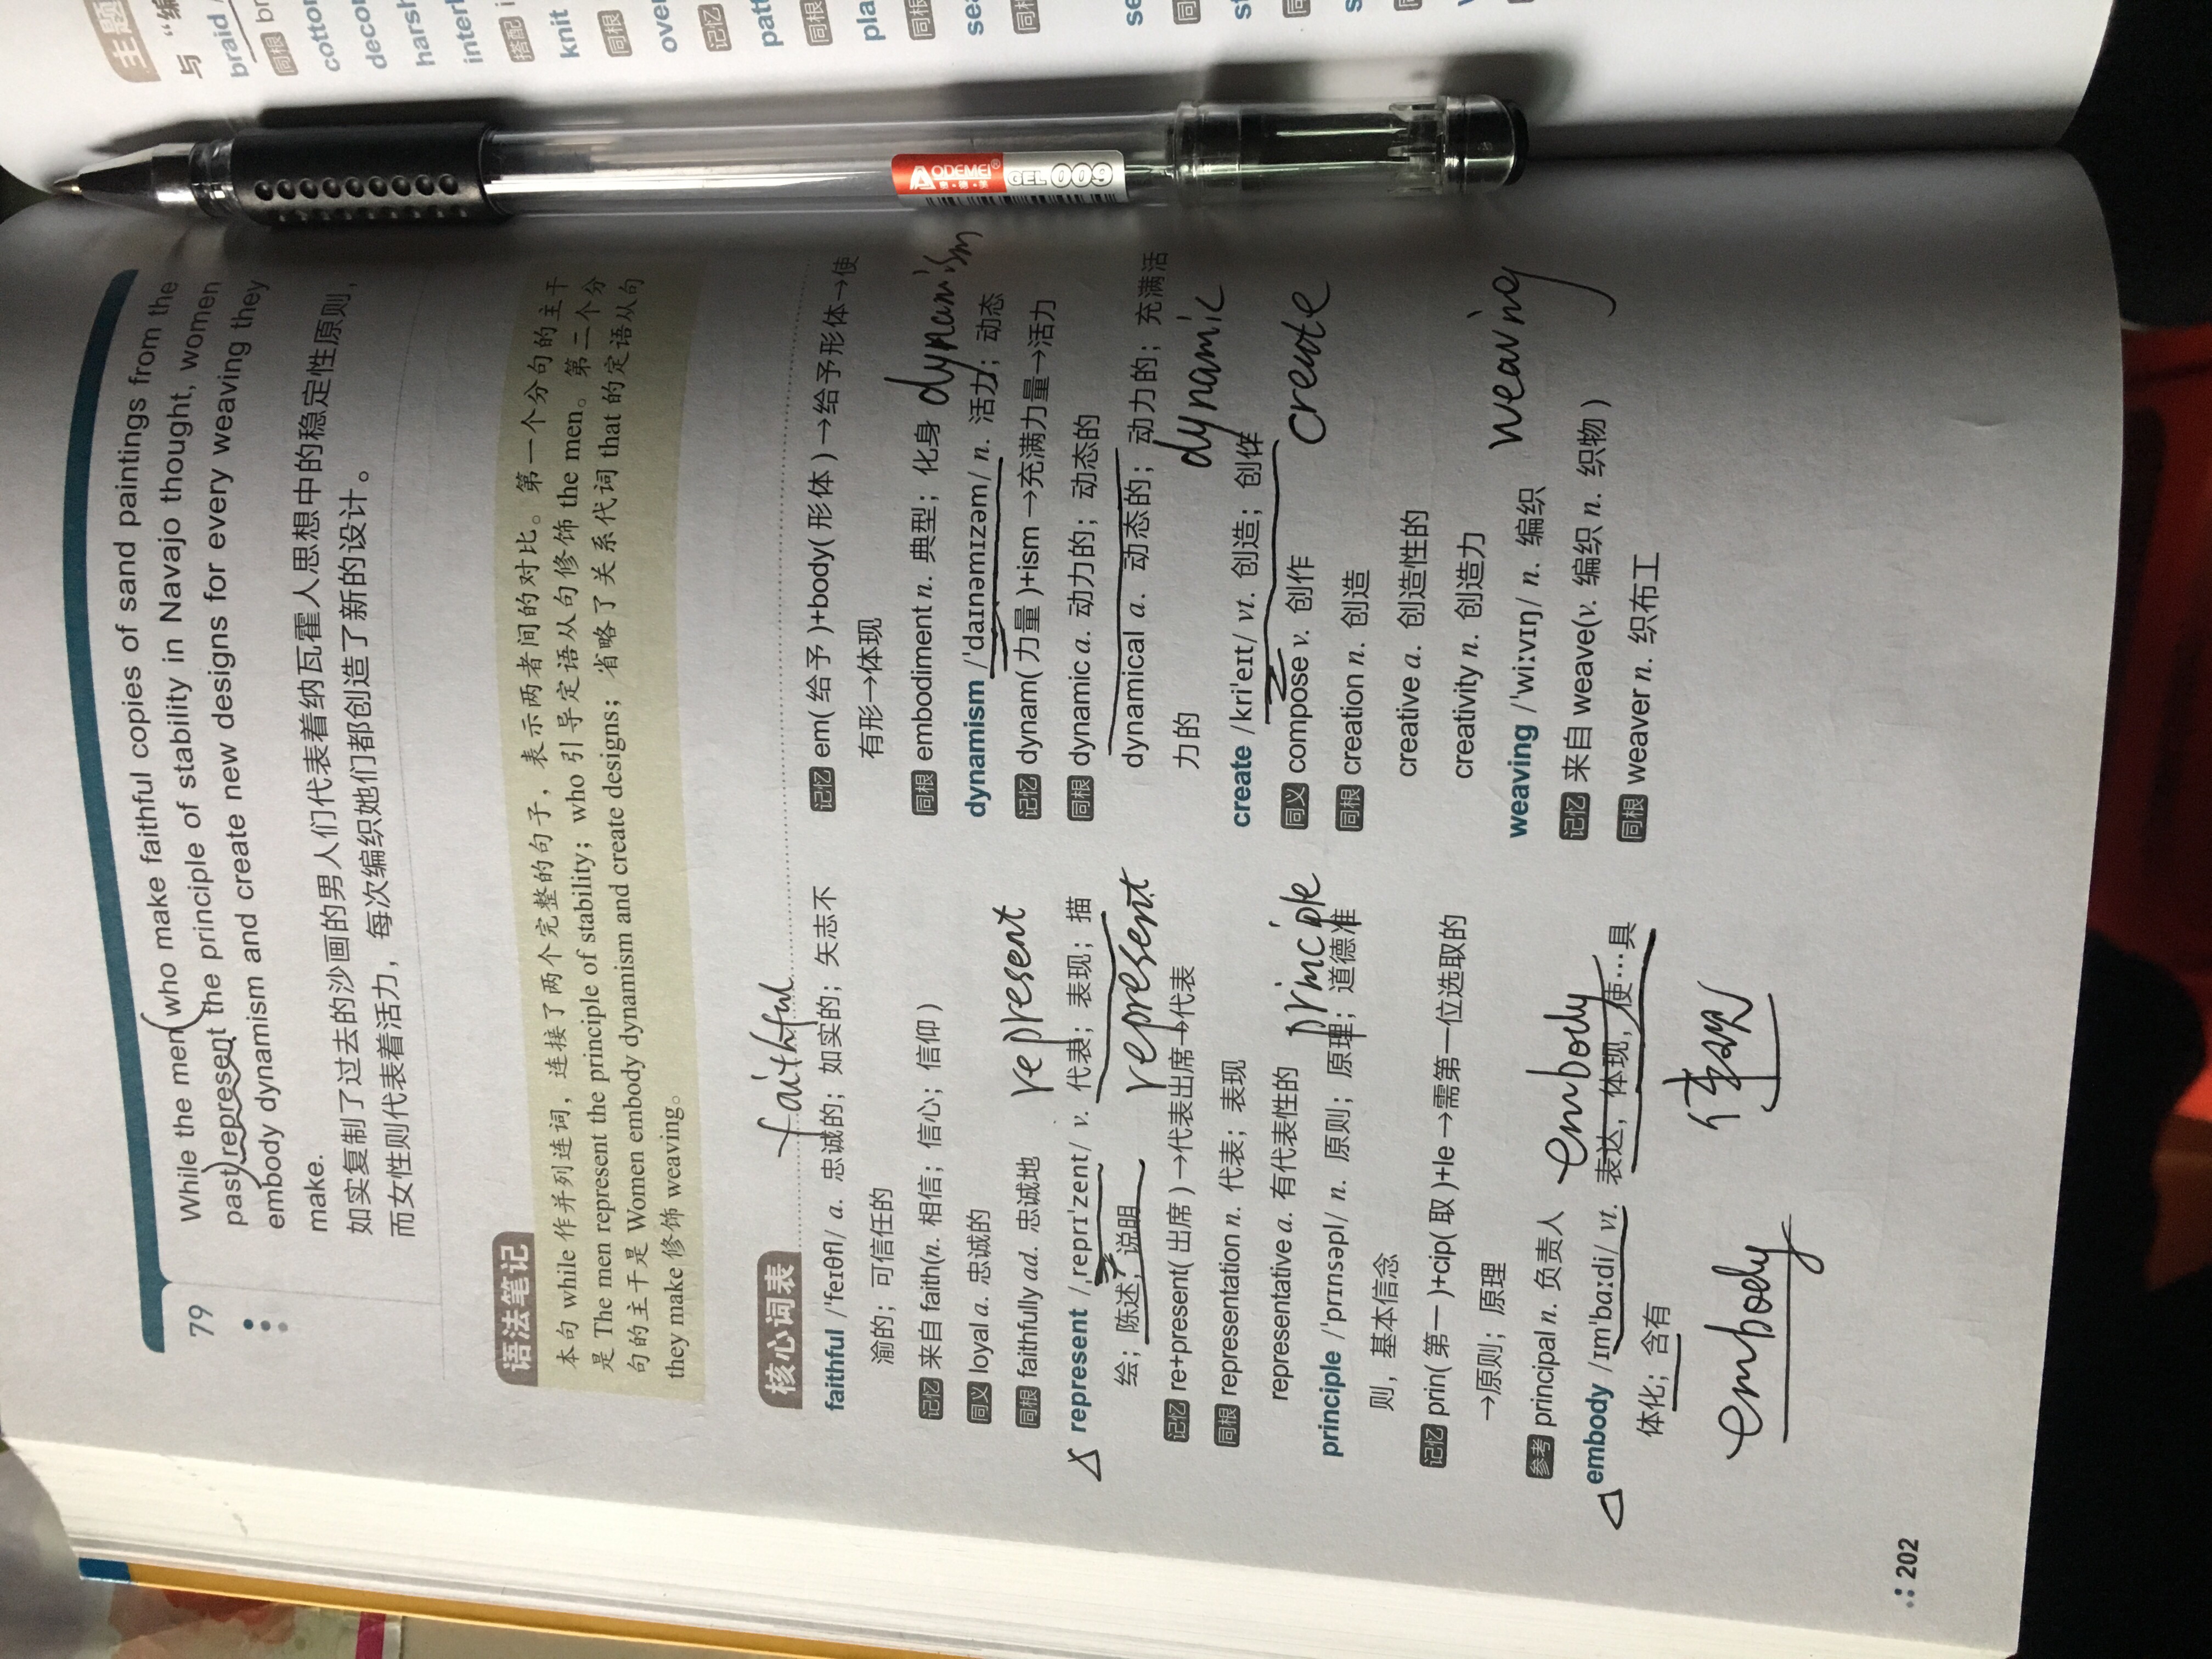 79
While the men who make faithful copies of sand paintings from the
past represent the principle of stability in Navajo thought, women
embody dynamism and create new designs for every weaving they
make.
如实复制了过去的沙画的男人们代表着纳瓦霍人思想中的稳定性原则，
而女性则代表着活力，每次编织她们都创造了新的设计。
语法笔记
本句 while 作并列连词，连接了两个完整的句子，表示两者间的对比。第一个分句的主干
是 The men represent the principle of stability；who 引导定语从句修饰 the men。第二个分
句的主干是 Women embody dynamism and create designs；省略了关系代词 that 的定语从句
they make 修饰 weaving。
核心词表
faithful
faithful /ˈfeɪθfl/ a. 忠诚的；如实的；矢志不
渝的；可信任的
记忆 来自 faith(n. 相信；信心；信仰)
同义 loyal a. 忠诚的
同根 faithfully ad. 忠诚地
represent
represent /ˌreprɪˈzent/ v. 代表；表现；描
绘；陈述，说明
represent
记忆 re+present(出席)→代表出席→代表
同根 representation n. 代表；表现
representative a. 有代表性的
principle
principle /ˈprɪnsəpl/ n. 原则；原理；道德准
则，基本信念
记忆 prin(第一)+cip(取)+le→需第一位选取的
→原则；原理
参考 principal n. 负责人
embody
embody /ɪmˈbɑːdi/ vt. 表达，体现，使…具
体化；含有
embody
体现
记忆 em(给予)+body(形体)→给予形体→使
有形→体现
同根 embodiment n. 典型；化身
dynamism
dynamism /ˈdaɪnəmɪzəm/ n. 活力；动态
记忆 dynam(力量)+ism→充满力量→活力
同根 dynamic a. 动力的；动态的
dynamical a. 动态的；动力的；充满活
力的
dynamic
create /kriˈeɪt/ vt. 创造；创作
create
同义 compose v. 创作
同根 creation n. 创造
creative a. 创造性的
creativity n. 创造力
weaving /ˈwiːvɪŋ/ n. 编织
weaving
记忆 来自 weave(v. 编织 n. 织物)
同根 weaver n. 织布工
202
主题
与“编
braid
同根 br
cotto
decor
harsh
inter
搭配 i
knit
同根
over
记忆
patt
同根
pla
同根
sea
同根
se
同根
ODEMEI®
GEL 009